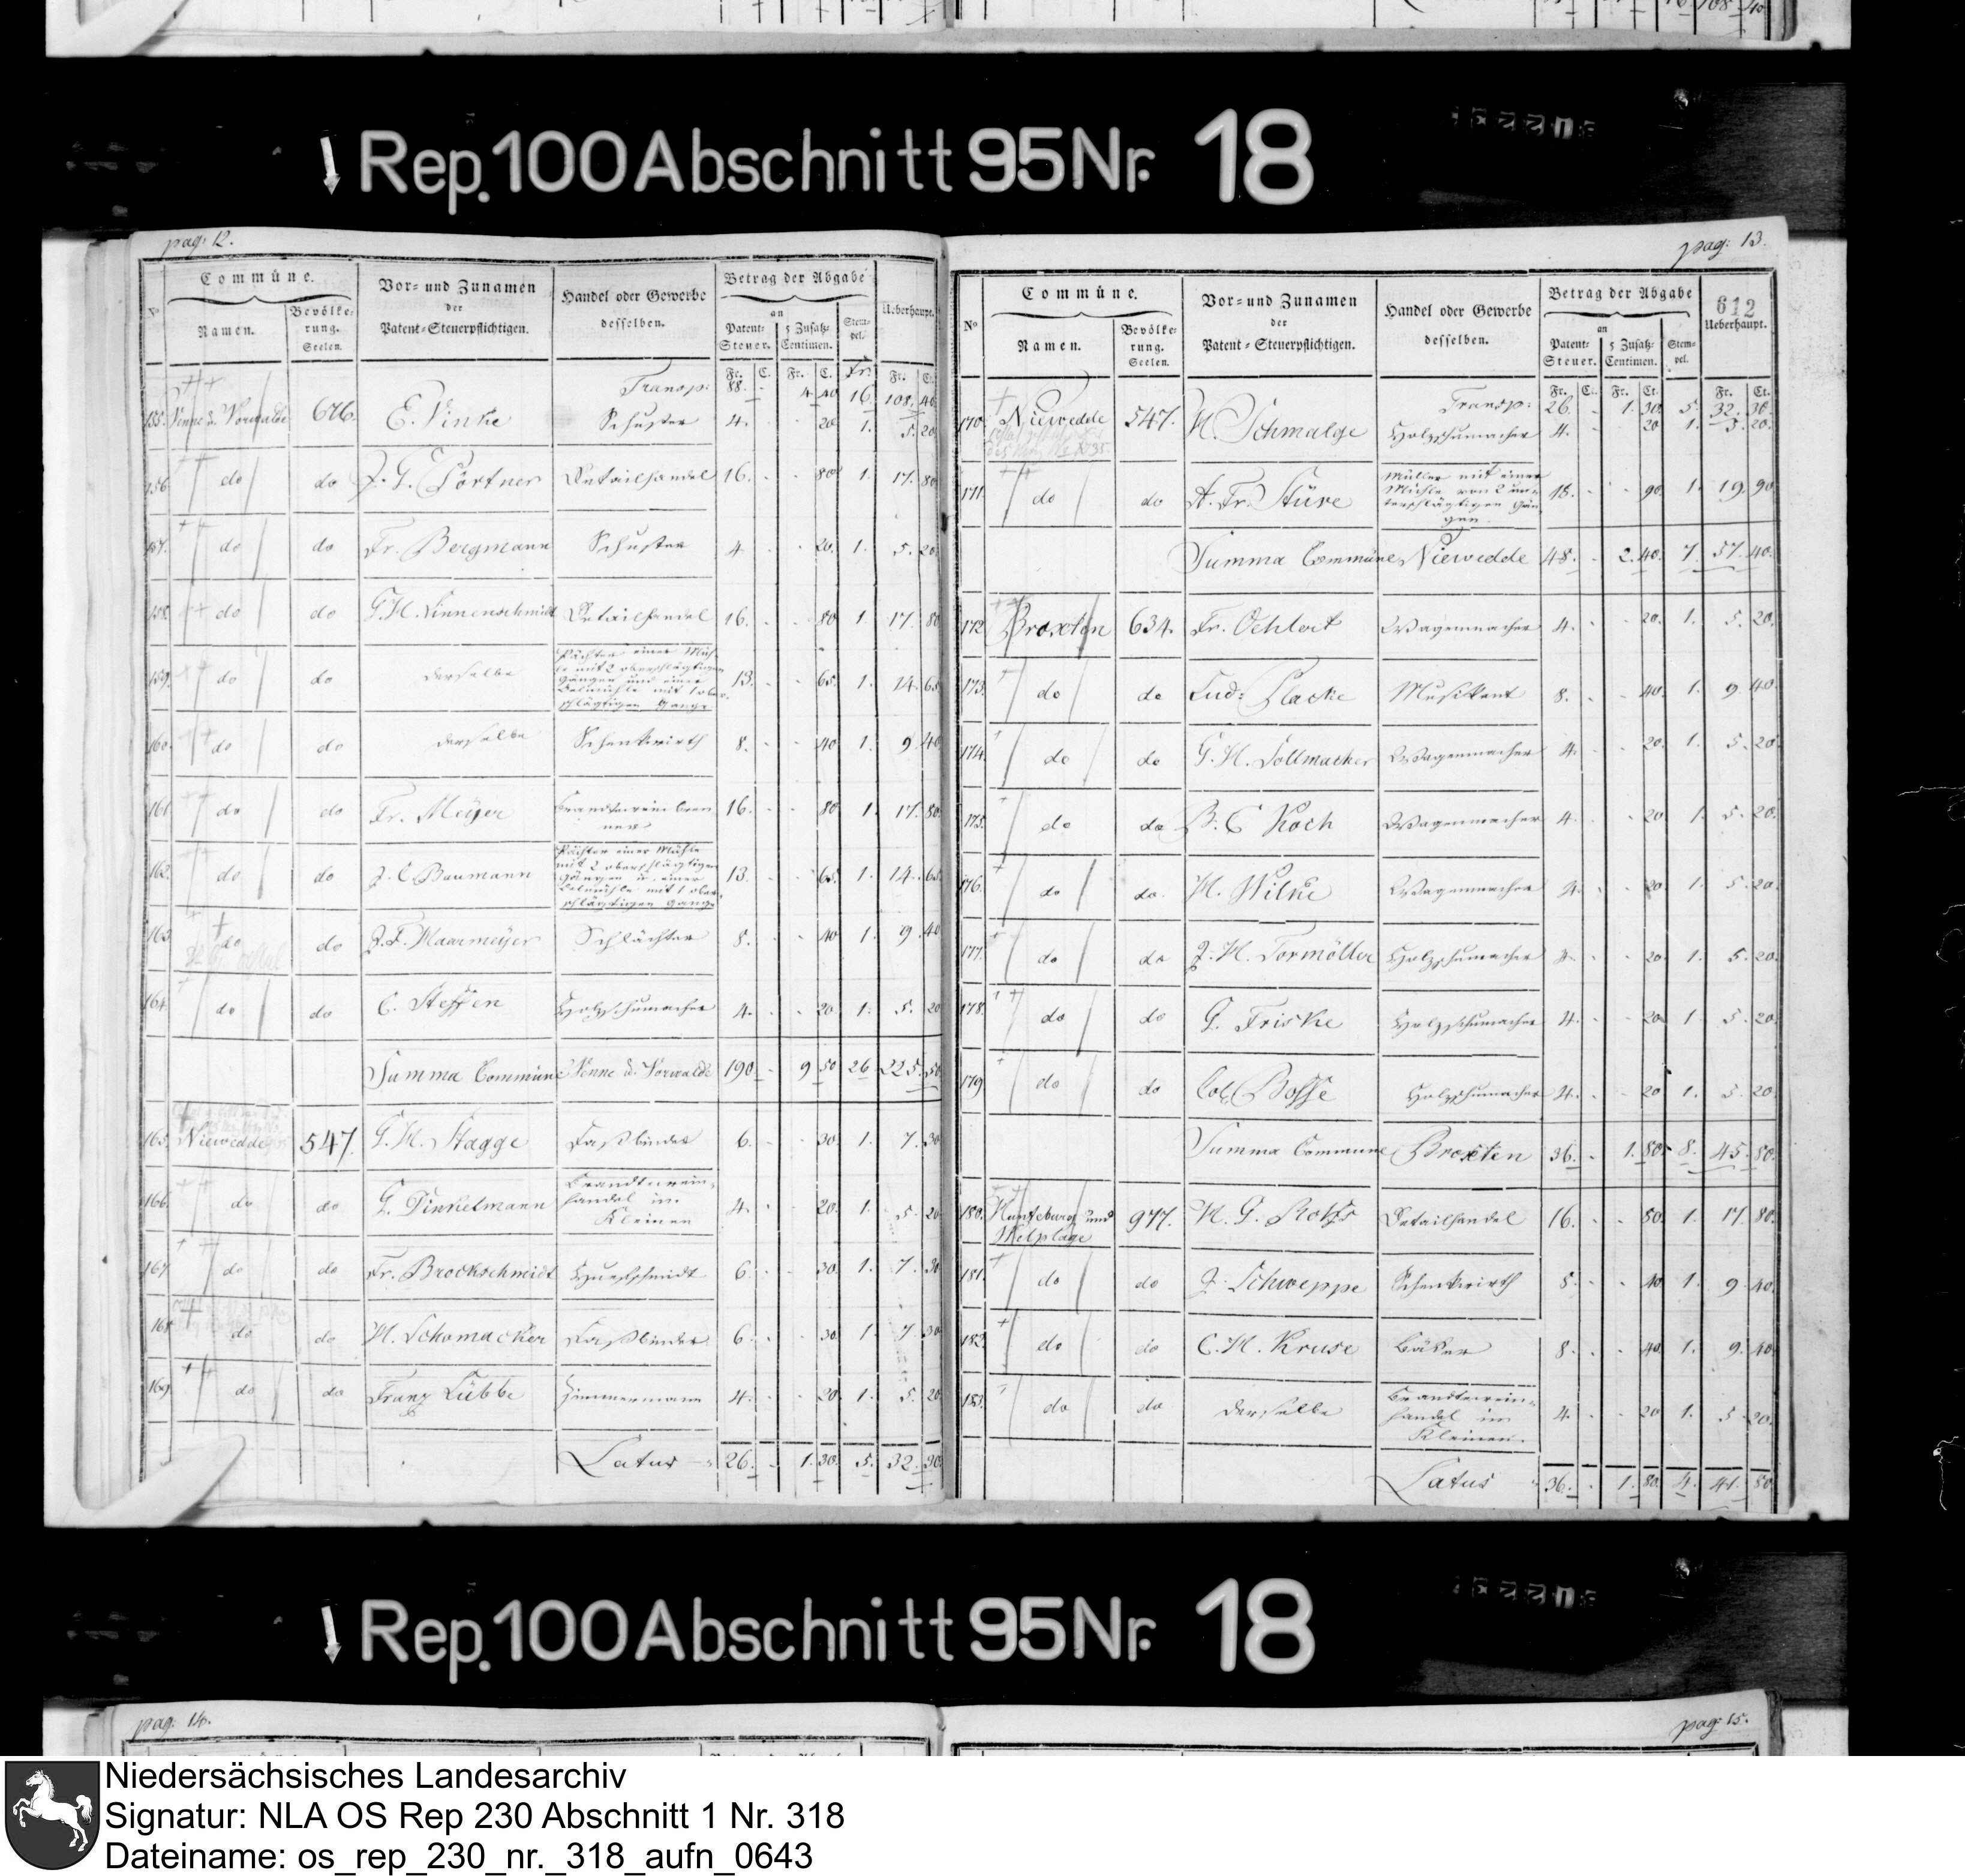 Rep. 100 Abschnitt 95 Nr. 18
pag: 12.
No
Commüne.
Namen.
Bevölke-
rung.
Seelen.
Vor- und Zunamen
der
Patent-Steuerpflichtigen.
Handel oder Gewerbe
desselben.
Betrag der Abgabe
an
Patent-
Steuer.
5 Zusatz-
Centimen.
Stem-
pel.
Ueberhaupt.
Fr. C. Fr. C. Fr. Fr. Ct.
Transp: 88. - 4 40 16 108. 40
155. Venne u. Vorwalde 676. E. Vinke Schuster 4. - - 20 1. 5. 20
156 do do J. G. Pörtner Detailhandel 16. - - 80 1. 17. 80
157. do do Fr. Bergmann Schuster 4 - - 20. 1. 5. 20
158. do do G. H. Linnenschmidt Detailhandel 16. - - 80 1. 17. 80
159. do do derselbe Pächter einer Müh-
le mit 2 oberschlägtigen
Gängen und einer
Oelmühle mit 1 ober-
schlägtigen Gange 13. - - 65. 1. 14. 65
160. do do derselbe Schenkwirth 8. - - 40 1. 9. 40
161 do do Fr. Meÿer Brandtwein bren
ner 16. - - 80 1. 17. 80
162. do do J. C. Baumann Pächter einer Mühle
mit 2 oberschlägtigen
Gängen u. einer
Oelmühle mit 1 ober
schlägtigen Gange 13. - - 65. 1. 14. 65
163 do do J. F. Maarmeÿer Schlächter 8. - - 40 1. 9. 40
164. do do C. Steffen Holzschumacher 4. - - 20 1. 5. 20
Summa Commüne Venne u. Vorwalde 190. - 9 50 26 225. 50
165. Niewedde 547. G. H. Stagge Faßbinder 6. - - 30. 1. 7. 30
166. do do G. Dinkelmann Brandtwein-
handel im
Kleinen 4. - - 20. 1. 5. 20
167 do do Fr. Brockschmidt Hufschmidt 6. - - 30. 1. 7. 30
168 do do H. Schomacker Faßbinder 6. - - 30 1. 7. 30
169. do do Franz Lübbe Zimmermann 4. - - 20. 1. 5. 20
Latus 26. - 1. 30. 5. 32. 30
pag: 13.
612
No
Commüne.
Namen.
Bevölke-
rung.
Seelen.
Vor- und Zunamen
der
Patent-Steuerpflichtigen.
Handel oder Gewerbe
desselben.
Betrag der Abgabe
an
Patent-
Steuer.
5 Zusatz-
Centimen.
Stem-
pel.
Ueberhaupt.
Fr. C. Fr. Ct. Fr. Ct.
Transp: 26. - 1. 30. 5. 32. 30.
170. Niewedde 547. H. Schmalge Holzschumacher 4. - - 20 1. 5. 20.
171. do do A. Fr. Stüve Müller mit einer
Mühle von 2 un-
terschlägtigen Gän
gen. 18. - - 90. 1. 19. 90
Summa Commüne Niewedde 48. - 2. 40. 7. 57. 40.
172 Broxten 634. Fr. Oehlert Wagenmacher 4. - - 20. 1. 5. 20.
173. do do Lud: Placke Musikant 8. - - 40. 1. 9. 40
174. do do G. H. Sollmacker Wagenmacher 4. - - 20. 1. 5. 20
175. do do B. C Koch Wagenmacher 4. - - 20 1. 5. 20.
176. do do. H. Wilke Wagenmacher 4. - - 20. 1. 5. 20
177. do do J. H. Tormöllen Holzschumacher 4. - - 20. 1. 5. 20
178. do do G. Friske Holzschumacher 4. - - 20 1 5. 20.
179 do do Col. Bosse Holzschumacher 4. - - 20 1. 5. 20
Summa Commune Broxten 36. - 1. 80. 8. 45. 80.
180. Hunteburg und
Welplage 977. H. G. Rolfs Detailhandel 16. - - 80. 1. 17. 80.
181. do do J. Schweppe Schenkwirth 8. - - 40 1. 9. 40.
182. do do C. H. Kruse Bäker 8. - - 40. 1. 9. 40
183. do do derselbe Brandtwein-
handel im
Kleinen. 4. - - 20 1. 5. 20.
Latus 36. - 1. 80. 4. 41. 80
Rep. 100 Abschnitt 95 Nr. 18
pag: 14.
pag: 15.
Niedersächsisches Landesarchiv
Signatur: NLA OS Rep 230 Abschnitt 1 Nr. 318
Dateiname: os_rep_230_nr._318_aufn_0643